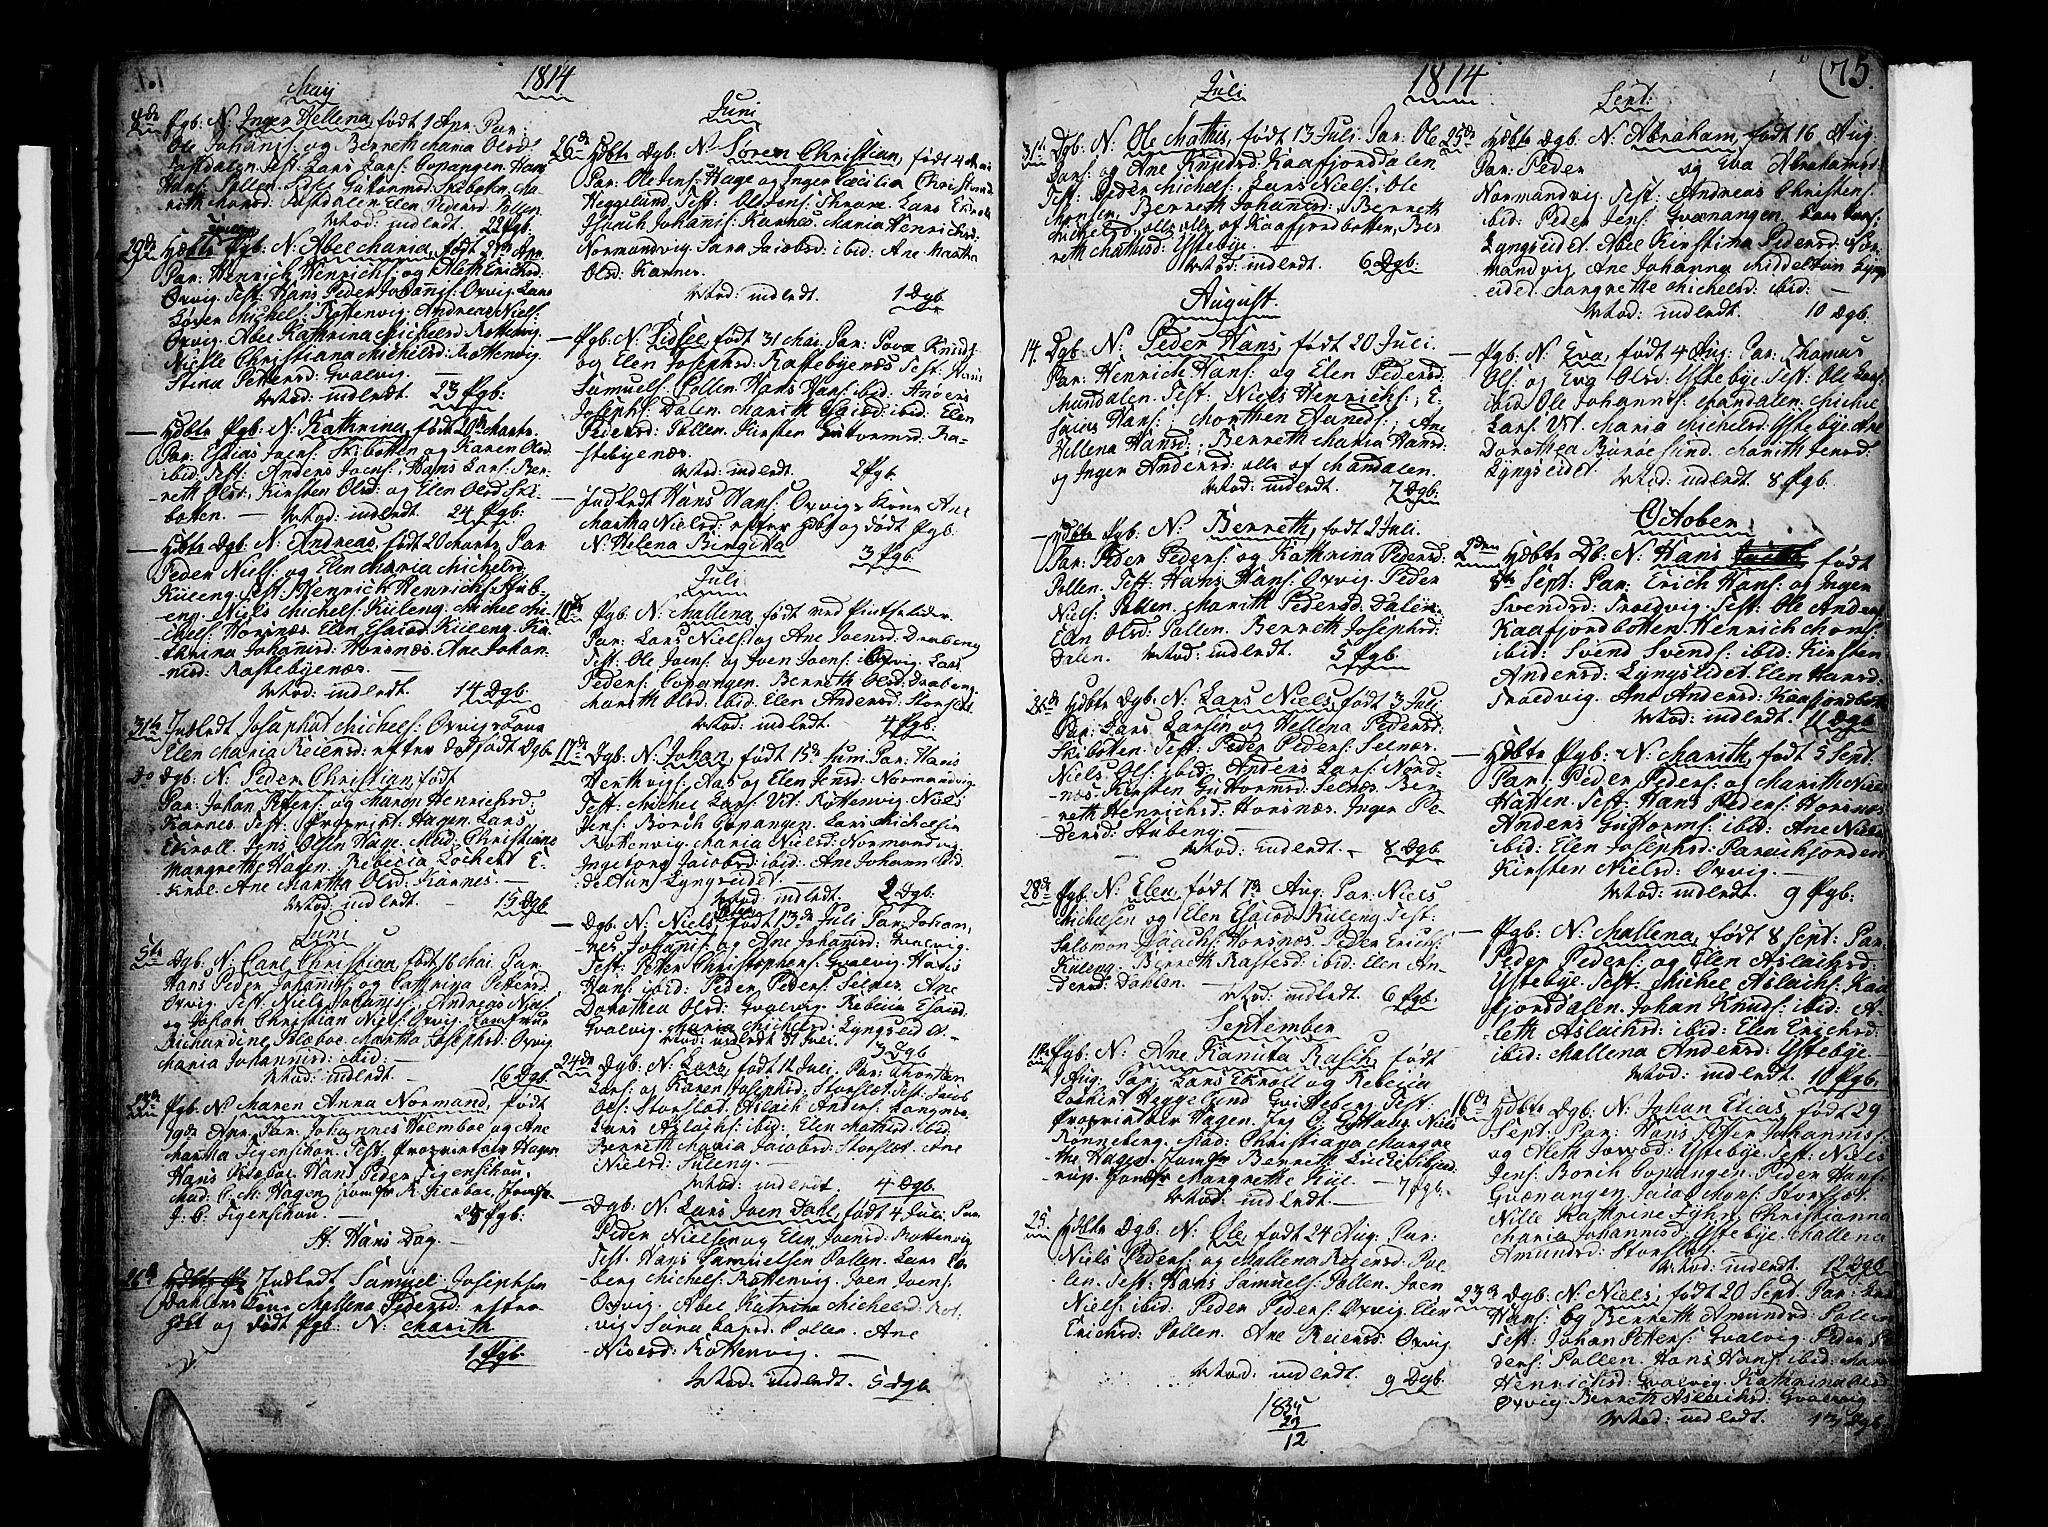 1814
May
Pgb: N: Inger Hellena, født 1 Apr. Par:
Ole Johans: og Berreth Maria Olsd:
Hans: Pollen.
Mod: indledt. 22 Pgb:
29de Hdbte Pgb: N: Abel Maria, født
Par: Henrich Henrichs: og Aleth Erichsd:
Oxvig. Test: Hans Peder Johanis: Oxvig. Lars
Michels: Rottenvig. Andreas Niels:
Oxvig. Abel Kathrina Michelsd: Rottenvig.
Nille Christiana Michelsd: Rottenvig.
Stina Pettersd: Gvalvig. —
Mod: indledt. 23 Pgb:
— Hdbte Pgb: N: Kathrina, født 20de Marts.
Par: Esaias Joens: Skibotten og Karen Olsd:
ibid. Test: Anders Joens: Hans Lars: Ber-
reth Olsd: Kirsten Olsd: og Elen Olsd Ski-
botten. — Mod: indledt. 24 Pgb:
— Hdbte Dgb: N: Andreas, født 20 Marts Par:
Peder Niels: og Elen Maria Michelsd:
Kileng. Test: Henrich Henrichs:
Niels Michels: Kileng. Michel Mi-
chels: Horsnæs. Elen Esaiæd: Kileng. Ka-
thrina Johanisd: Horsnæs. Ane Johan-
nisd: Rastebyenæs. —
Mod: indledt. 14 Dgb:
31te Indledt Josaphat Michels: Oxvigs Kone
Elen Maria Reiersd: efter dødfødt Dgb:
Do Dgb: N: Peder Christian, født
Par: Johan Peters: og Maren Henrichsd:
Karnes. Test: Propriet: Hagen. Lars
Ekroll. Jens Olsen Hage. Mad: Christiane
Margrethe Hagen. Rebecca Lockert E-
kroll. Ane Martha Olsd: Karnes. —
Mod: indledt. — 15 Dgb
Juni
5te Dgb: N: Carl Christian, født 16 Mai. Par:
Hans Peder Johannis: og Cathrina Pettersd:
Oxvig. Test: Niels Johanis: Andreas Niels:
og Johan Christian Niels: Oxvig. Jomfrue
Richardine Holeboe. Martha Josephsd: Oxvig.
Maria Johannisd: ibid: —
Mod: indledt. — 16 Dgb:
Pgb: N: Maren Anna Normand, født
Apr. Par: Johannes Holmboe og Ane
Martha Figenschou. Test: Proprietair Hagen
Hans Kildboe. Hans Peder Figenschou.
Mad: C. M: Hagen Jomfr R. Kildboe. Jomfr
J. P. Figenschou. — 25 Pgb:
St. Hans Dag. —
Indledt Samuel Josephsen
Dahlens Kone Mallena Pedersd: efter
født og død Pgb: N: Marith
1 Pgb:
Juni
26de Hdbte Dgb: N: Søren Christian, født
Par: Ole Jens: Hage og Inger Cæcilia
Heggelund. Test: Ole Jens:
Isaach Johanis: Karnes. Maria Henrichsd:
Normandvig. Sara Jacobsd: ibid: Ane Martha
Olsd: Karnes.
Mod: indledt. 1 Dgb.
— Pgb: N: Sidsel, født 31 Mai. Par: Povel Knuds:
og Elen Josephsd: Rastebyenæs. Test: Hans
Samuels: Pollen. Hans Hans: ibid: Anders
Josephs: Dalen. Marith Esaiæd: ibid. Elen
Pedersd: Pollen. Kirsten Guttormsd: Ra-
stebyenæs.
Mod: indledt. 2 Pgb.
— Indledt Hans Hans: Oxvigs Kone Ane
Martha Nielsd: efter Hdbt og død Pgb:
N: Helena Birgitta 3 Pgb:
Juli
10de Pgb: N: Mallena, født ved Pintsetider
Par: Lars Niels: og Ane Joensd: Draabeng.
Test: Ole Joens: og Joen Joens:
Peders: Copangen. Berreth Olsd: Draabeng
Marith Olsd: ibid. Elen Andersd: Storslet
Mod: indledt. 4 Pgb:
17de Dgb: N: Johan, født 15de Juni. Par: Hans
Aas og Elen Jensd: Normandvig.
Test: Michel Lars: Vit: Rottenvig. Niels
Jens: Borch Copangen. Lars Michelsen
Rottenvig. Maria Nielsd: Normandvig
Ingeborg Jacobsd: ibid: Ane Johanna Mid-
delthun Lyngseidet. —
Mod: indledt. 2 Dgb:
— Dgb: N: Niels Peter, født 13de Juli. Par: Johan-
nes Johanis: og Ane Johanisd: Gvalvig.
Test: Peter Christophers: Gvalvig. Hans
Hans: ibid: Peder Peders: Selnes. Ane
Dorothea Olsd: Gvalvig. Rebecca Esaiæd:
Gvalvig. Maria Michelsd: Lyngseidet.
Mod: indledt 31 Juli.
3 Dgb
24de Dgb: N: Lars, født 12 Juli. Par: Morten
Lars: og Karen Josephsd: Storslet. Test: Jacob
Ols: Storslet. Aslach Anders: Langnes.
Lars Aslachs: ibid: Elen Mathisd: ibid:
Berreth Maria Jacobsd: Storslet. Ane
Nielsd: Fuleng. —
Mod: indledt 4 Dgb.
— Dgb: N: Lars Joen Dahl, født 4 Juli. Par:
Peder Nielsen og Elen Joensd: Rottenvig
Test: Hans Samuelsen Pollen. Lars
Michels: Rottenvig. Joen Joens:
Oxvig. Abel Katrina Michelsd: Rot-
vig. Sara Larsd: Pollen. Ane
Nielsd: Rottenvig. —
Mod: indledt. 5 Dgb.
1814 75.
Juli
31te Dgb: N: Ole Mathis, født 13 Juli. Par: Ole
Lars: og Ane Knudsd: Kaafjorddalen
Test: Peder Michels: Lars Niels: Ole
Monsen. Berreth Johannisd: Berreth
Michelsd: alle af Kaafjordbotten, Ber-
reth Mathisd: Ystebye.
Mod: indledt. 6 Dgb:
August.
14. Dgb: N: Peder Hans, født 20 Juli.
Par: Henrich Hans: og Elen Pedersd:
Mandalen. Test: Niels Henrichs: E-
saias Hans: Morthen Eivends: Ane
Hellena Hansd: Berreth Maria Hansd:
og Inger Andersd: alle af Mandalen.
Mod: indledt. 7 Dgb:
— Hdbte Pgb: N: Berreth, født 2 Juli.
Par: Peder Peders: og Kathrina Pedersd:
Pollen. Test: Hans Hans: Oxvig. Peder
Niels: Pollen. Marith Pedersd: Dalen.
Elen Olsd: Pollen. Berreth Josephsd:
Dalen. Mod: indledt. 5 Pgb:
Hdbte Dgb: N: Lars Niels, født 3 Juli.
Par: Lars Larsen og Hellena Pedersd:
Skibotten. Test: Peder Peders: Selnæs.
Niels Ols: ibid: Anders Lars: Nord-
næs. Kirsten Guttormsd: Selnæs. Ber-
reth Henrichsd: Horsnæs. Inger Pe-
dersd: Stubeng. —
— Mod: indledt. — 8 Dgb:
28de Pgb: N: Elen, født 7de Aug. Par: Niels
Michelsen og Elen Esaiæd: Kileng. Test:
Salomon Isaachs: Horsnæs. Peder Erichs:
Kileng. Berreth Rastesd: ibid: Elen An-
dersd: Dahlen. — Mod: indledt. 6 Pgb:
September
11te Pgb: N: Ane Kanuta Rasch, født
1 Aug. Par: Lars Ekroll og Rebecca
Lockert Heggelund Test:
Proprietair Hagen. Niels
Rønneberg. Mad: Christiana Margre-
the Hagen. Jomfr Berreth
Jomfr Margrethe Kiil — 7 Pgb.
Mod: indledt —
25. Hdbte Dgb: N: Ole, født 24 Aug. Par:
Niels Peders: og Mallena Reiersd: Pol-
len. Test: Hans Samuels: Pollen. Joen
Niels: ibid: Peder Peders: Oxvig. Elen
Erichsd: Pollen. Ane Reiersd: Oxvig.
Mod: indledt. 9 Dgb:
1835
23
12
Sept:
25de Hdbte Dgb: N: Abraham, født 16 Aug.
Par: Peder og Eva Abrahamsd:
Normandvig. Test: Andreas Christens:
ibid: Peder Jens: Gvænangen. Lars Lars:
Lyngseidet. Abel Kirstina Pedersd: Nor-
mandvig. Ane Johanna Middelthun Lyngs-
eidet. Margrethe Michelsd: ibid: —
Mod: indledt. 10 Dgb.
— Pgb: N: Eva, født 4 Aug: Par: Thomas
Ols: og Eva Olsd: Ystebye. Test: Ole Lars:
ibid. Ole Johannis: Mandalen. Michel
Lars: Vit. Maria Michelsd: Ystebye. Ane
Dorothea Buroesund. Marith Jensd:
Lyngseidet Mod: indledt. 8 Pgb.
October
2den Hdbte Db: N: Hans født
8de Sept: Par: Erich Hans: og Inger
Svendsd: Troedvig. Test: Ole Anders:
Kaafjordbotten. Henrich Mons:
ibid: Svend Svends: ibid: Kirsten
Andersd: Lyngseidet. Elen Hansd:
Troedvig. Ane Andersd: Kaafjordbotten
Mod: indledt. 11 Dgb.
— Hdbte Pgb: N: Marith, født 5 Sept:
Par: Peder Peders: og Marith Niels:
Hatten. Test: Hans Peders: Horsnæs.
Anders Guttorms: ibid: Ane Niels:
ibid: Elen Josephsd: Parachfjorden
Kirsten Nielsd: Oxvig. —
Mod: indledt. 9 Pgb:
— Pgb: N: Mallena, født 8 Sept: Par:
Peder Peders: og Elen Aslachsd:
Ystebye. Test: Michel Aslachs: Kaa-
fjorddalen. Johan Knuds: ibid: A-
leth Aslachsd: ibid: Elen Erichsd:
ibid: Mallena Andersd: Ystebye. —
Mod: indledt. 10 Pgb.
16de Hdbte Dgb: N: Johan Elias, født 29
Sept: Par: Hans Peter Johannis:
og Aleth Ystebye. Test: Niels
Jens: Borch Copangen. Peder Hans:
Gvænangen. Jacob Mons: Storslet.
Nille Kathrine Fyhn. Christianna
Maria Johannisd: Ystebye. Mallena
Amundsd: Storslet.
Mod: indledt. 12 Dgb
23de Dgb: N: Niels, født 20 Sept. Par:
Hans: og Berreth Amundsd: Pollen
Test: Johan Petters: Gvalvig. Peder Pe-
ders: Pollen. Hans Hans: ibid: Maren
Henrichsd: Gvalvig. Kathrina Olsd:
Oxvig. Berreth Aslachsd: Gvalvig.
Mod: indledt. 13 Dgb